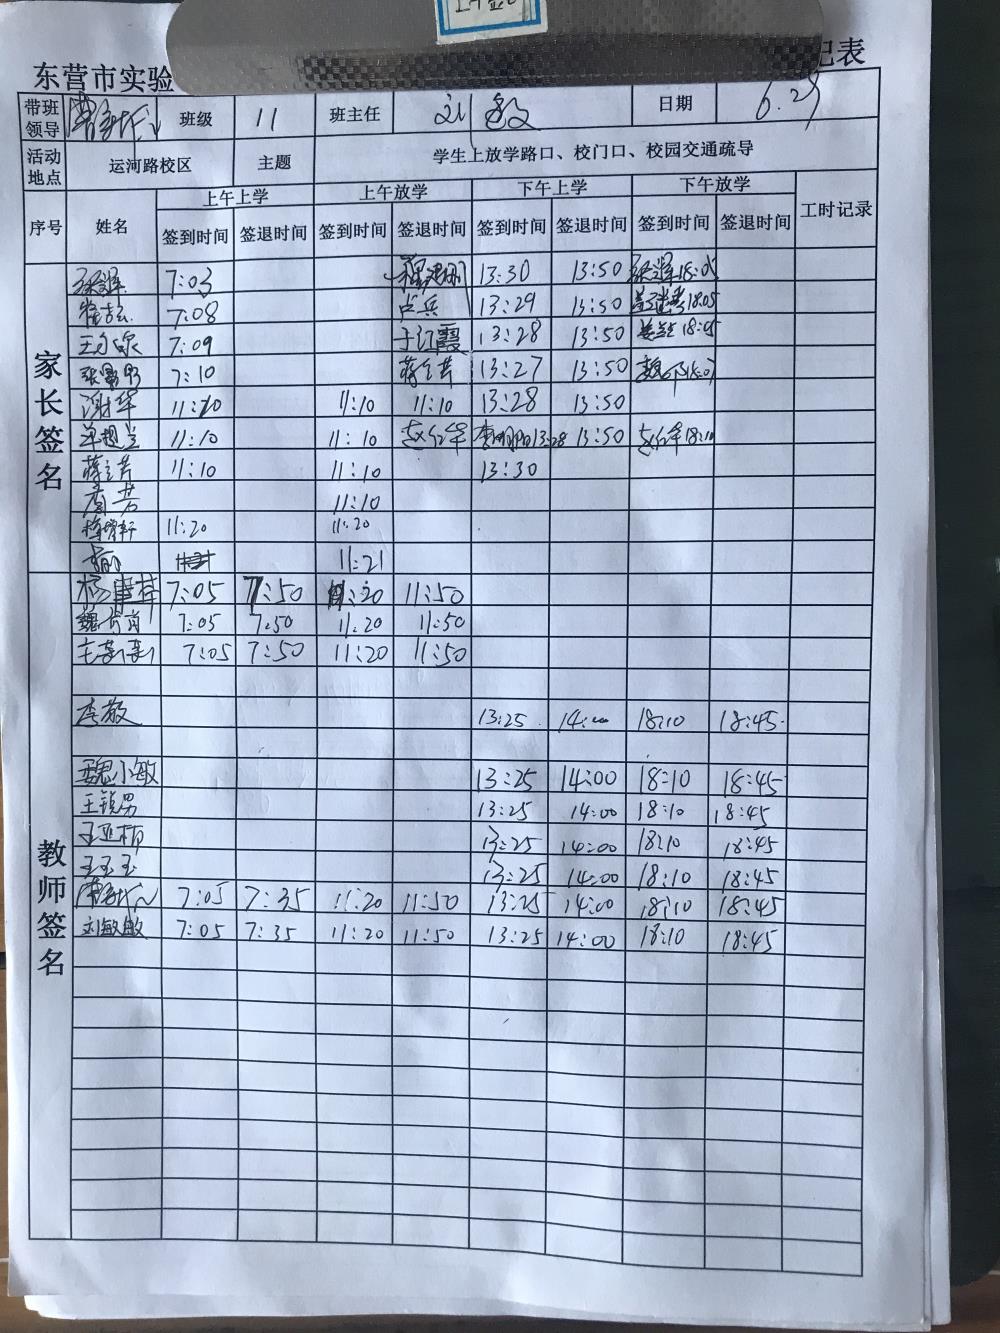 东营市实验 记表
带班领导 班级 11 班主任 刘 敏 日期 6.29
活动地点 运河路校区 主题 学生上放学路口、校门口、校园交通疏导
序号 姓名 上午上学 上午放学 下午上学 下午放学 工时记录
签到时间 签退时间 签到时间 签退时间 签到时间 签退时间 签到时间 签退时间
家长签名
7:03 13:30 13:50 18:05
7:08 占兵 13:29 13:50 18:05
7:09 于江霞 13:28 13:50 18:05
7:10 蒋立芹 13:27 13:50 18:07
谢华 11:20 11:10 11:10 13:28 13:50
单超兰 11:10 11:10 赵红华 13:28 13:50 赵红华 18:10
蒋立芹 11:10 11:10 13:30
唐芳 11:10
11:20 11:20
11:21
教师签名
7:05 7:50 11:20 11:50
魏 7:05 7:50 11:20 11:50
7:05 7:50 11:20 11:50
李敬 13:25 14:00 18:10 18:45
魏小敏 13:25 14:00 18:10 18:45
王锐男 13:25 14:00 18:10 18:45
王亚楠 13:25 14:00 18:10 18:45
王玉玉 13:25 14:00 18:10 18:45
7:05 7:35 11:20 11:50 13:25 14:00 18:10 18:45
刘敏敏 7:05 7:35 11:20 11:50 13:25 14:00 18:10 18:45